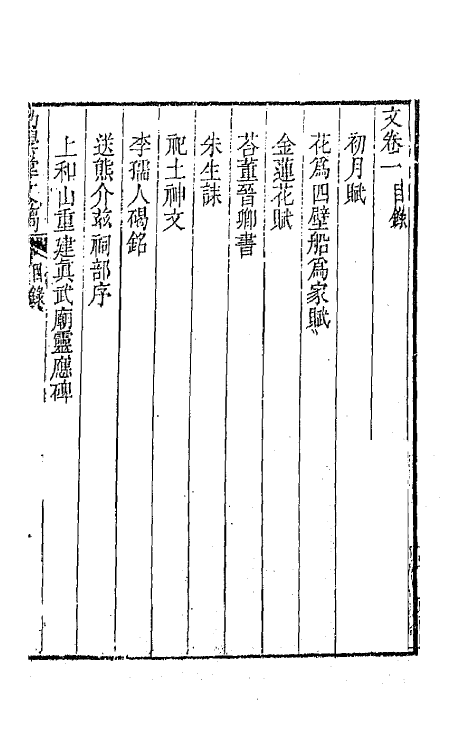 文卷一目錄
初月賦
花爲四壁船爲家賦
金蓮花賦
荅董晉卿書
朱生誄
祀土神文
李孺人碣銘
送熊介玆祠部序
上和山重建眞武廟靈應碑
目錄